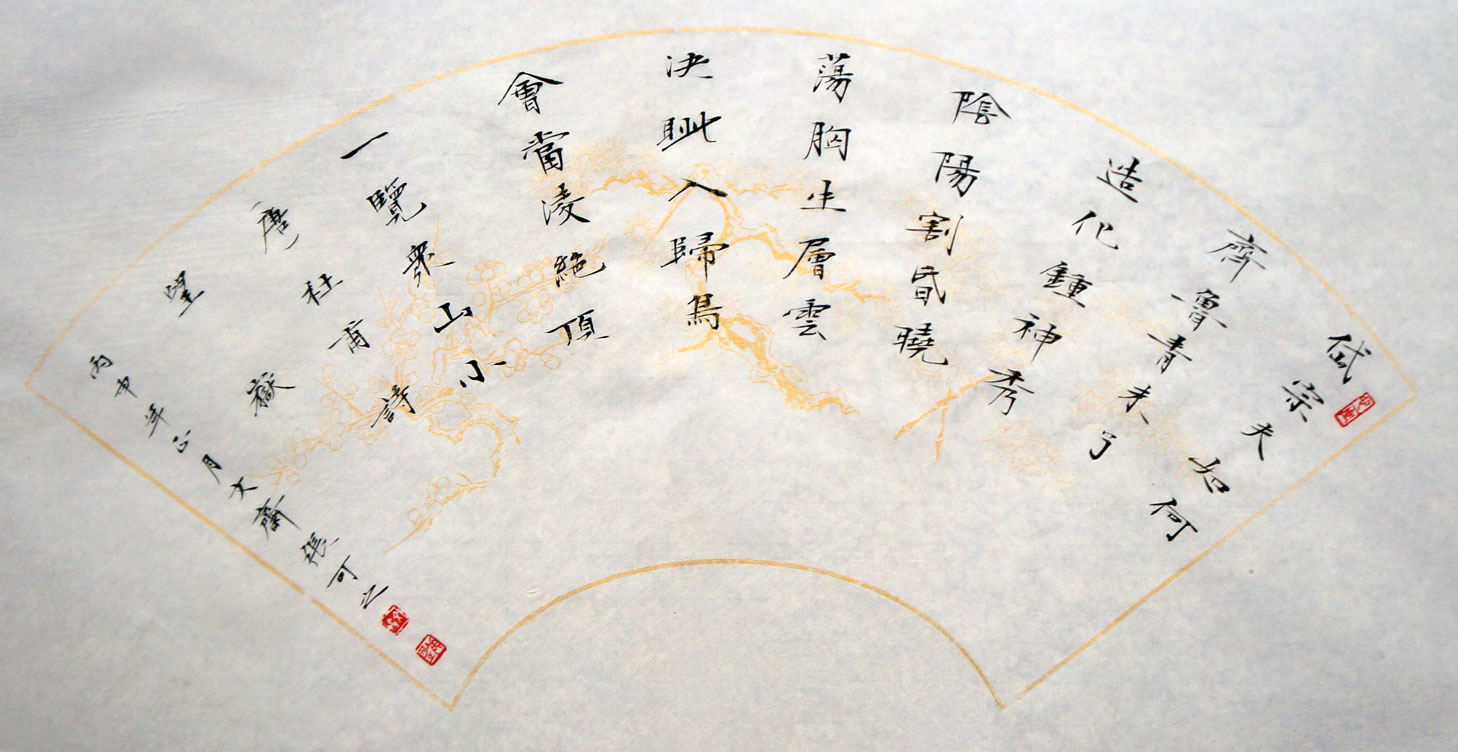 岱宗夫如何
齊魯青未了
造化鍾神秀
陰陽割昏曉
蕩胸生層雲
決眥入歸鳥
會當凌絕頂
一覽眾山小
唐杜甫詩
望嶽
丙申年正月大齋張可之